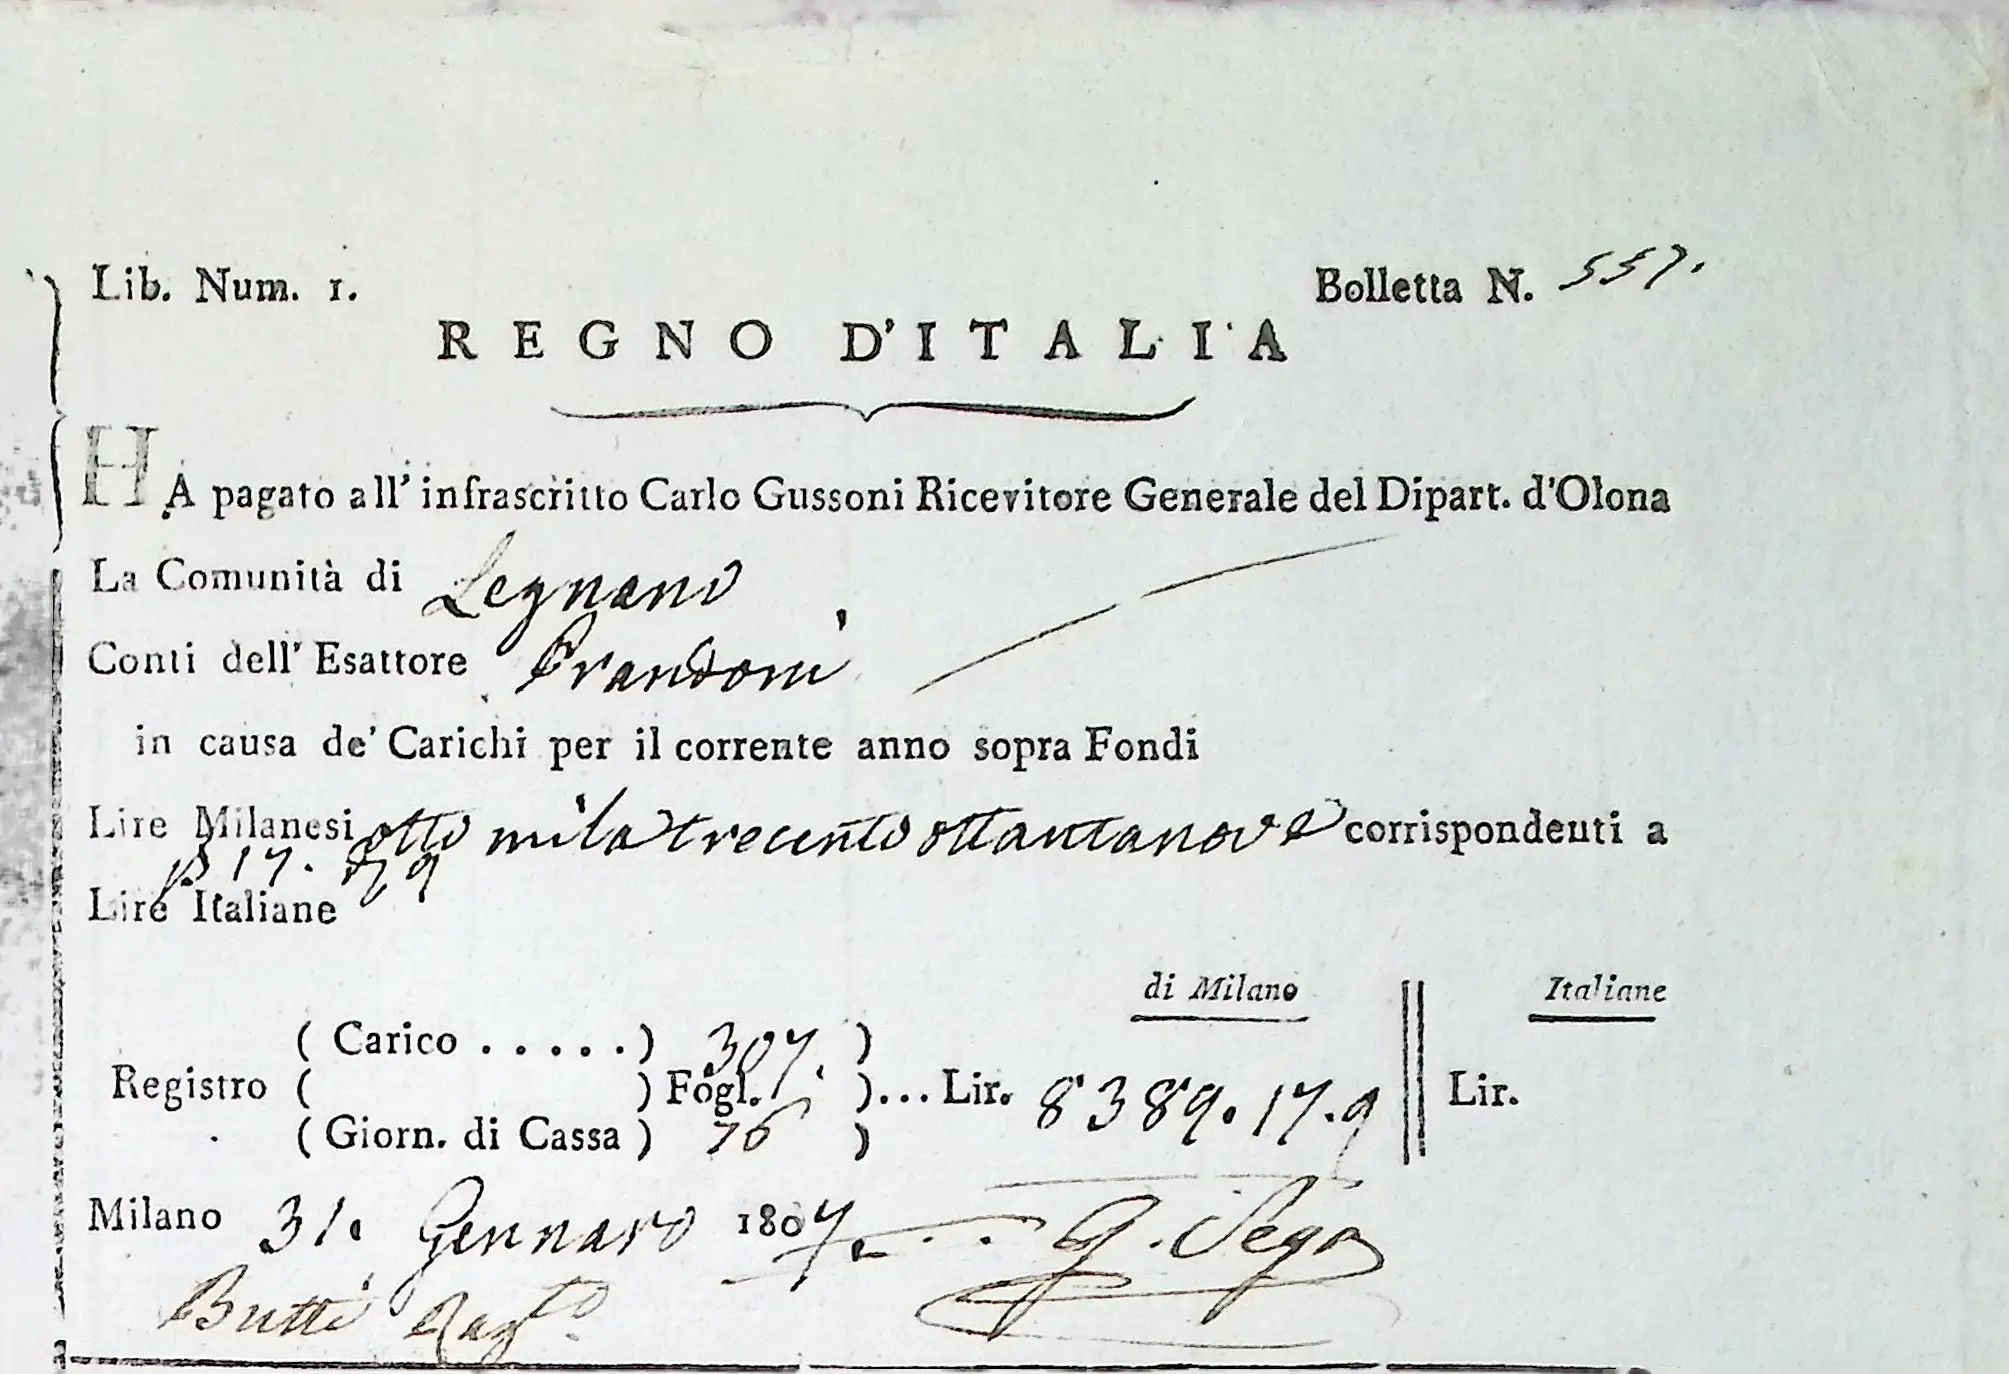 Lib. Num. 1.
Bolletta N. 557.
REGNO D'ITALIA
HA pagato all' infrascritto Carlo Gussoni Ricevitore Generale del Dipart. d'Olona
La Comunità di Legnano
Conti dell' Esattore Prandoni
in causa de' Carichi per il corrente anno sopra Fondi
Lire Milanesi otto mila trecento ottantanove corrispondenti a
ß 17. 9
Lire Italiane
di Milano Italiane
( Carico . . . . . ) 307. )
Registro ( ) Fogl. )... Lir. 8389.17.9 Lir.
( Giorn. di Cassa ) 76 )
Milano 31. Gennaro 1807
G. Sega
Butti Rag.to